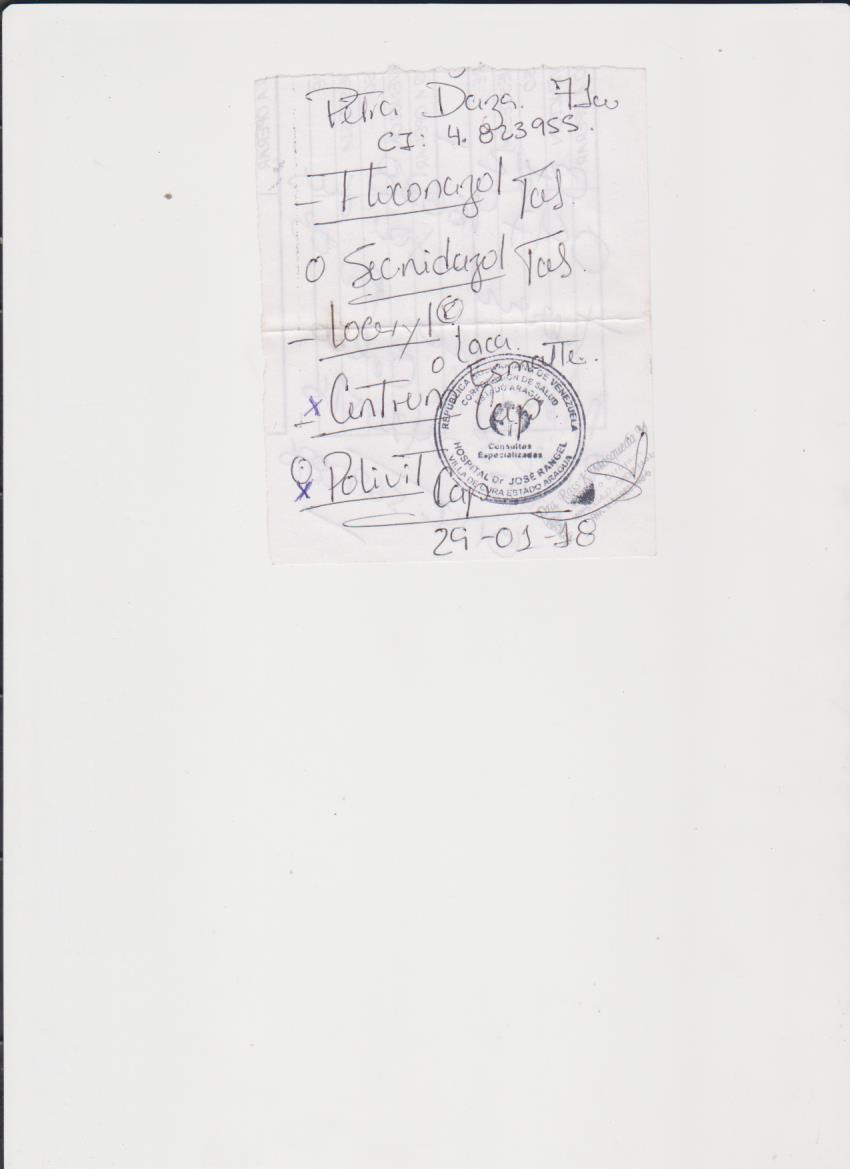 Petra Daza.
CI: 4.823955.
- Fluconazol Tab.
o Secnidazol Tab.
- Loceryl®
o Laca.
Esmalte.
x - Centrum Cap
o x Polivit Cap
29-01-18
REPUBLICA BOLIVARIANA DE VENEZUELA
CORPORACION DE SALUD
ESTADO ARAGUA
Consultas
Especializadas
HOSPITAL Dr. JOSE RANGEL
VILLA DE CURA ESTADO ARAGUA